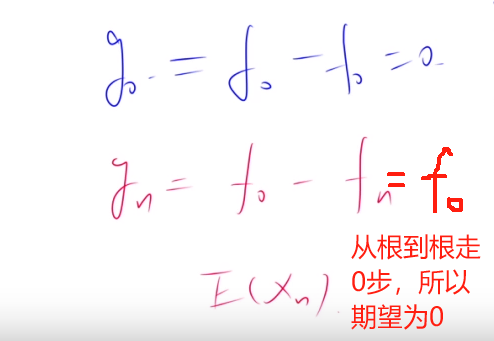 g₀ = f₀ - f₀ = 0
gₙ = f₀ - fₙ = f₀
E(Xₙ)
从根到根走
0步，所以
期望为0